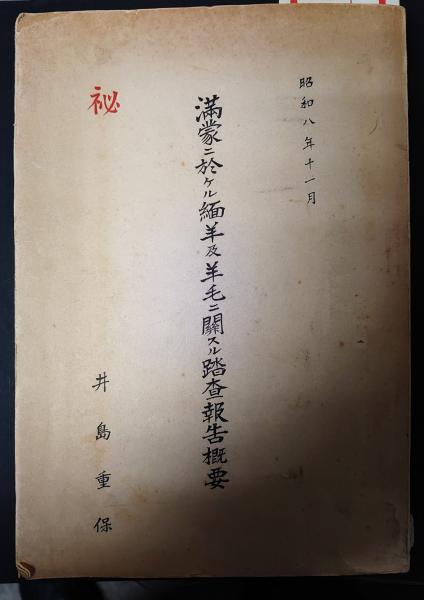 昭和八年十一月
滿蒙ニ於ケル緬羊及羊毛ニ關スル踏査報告概要
井島重保
祕